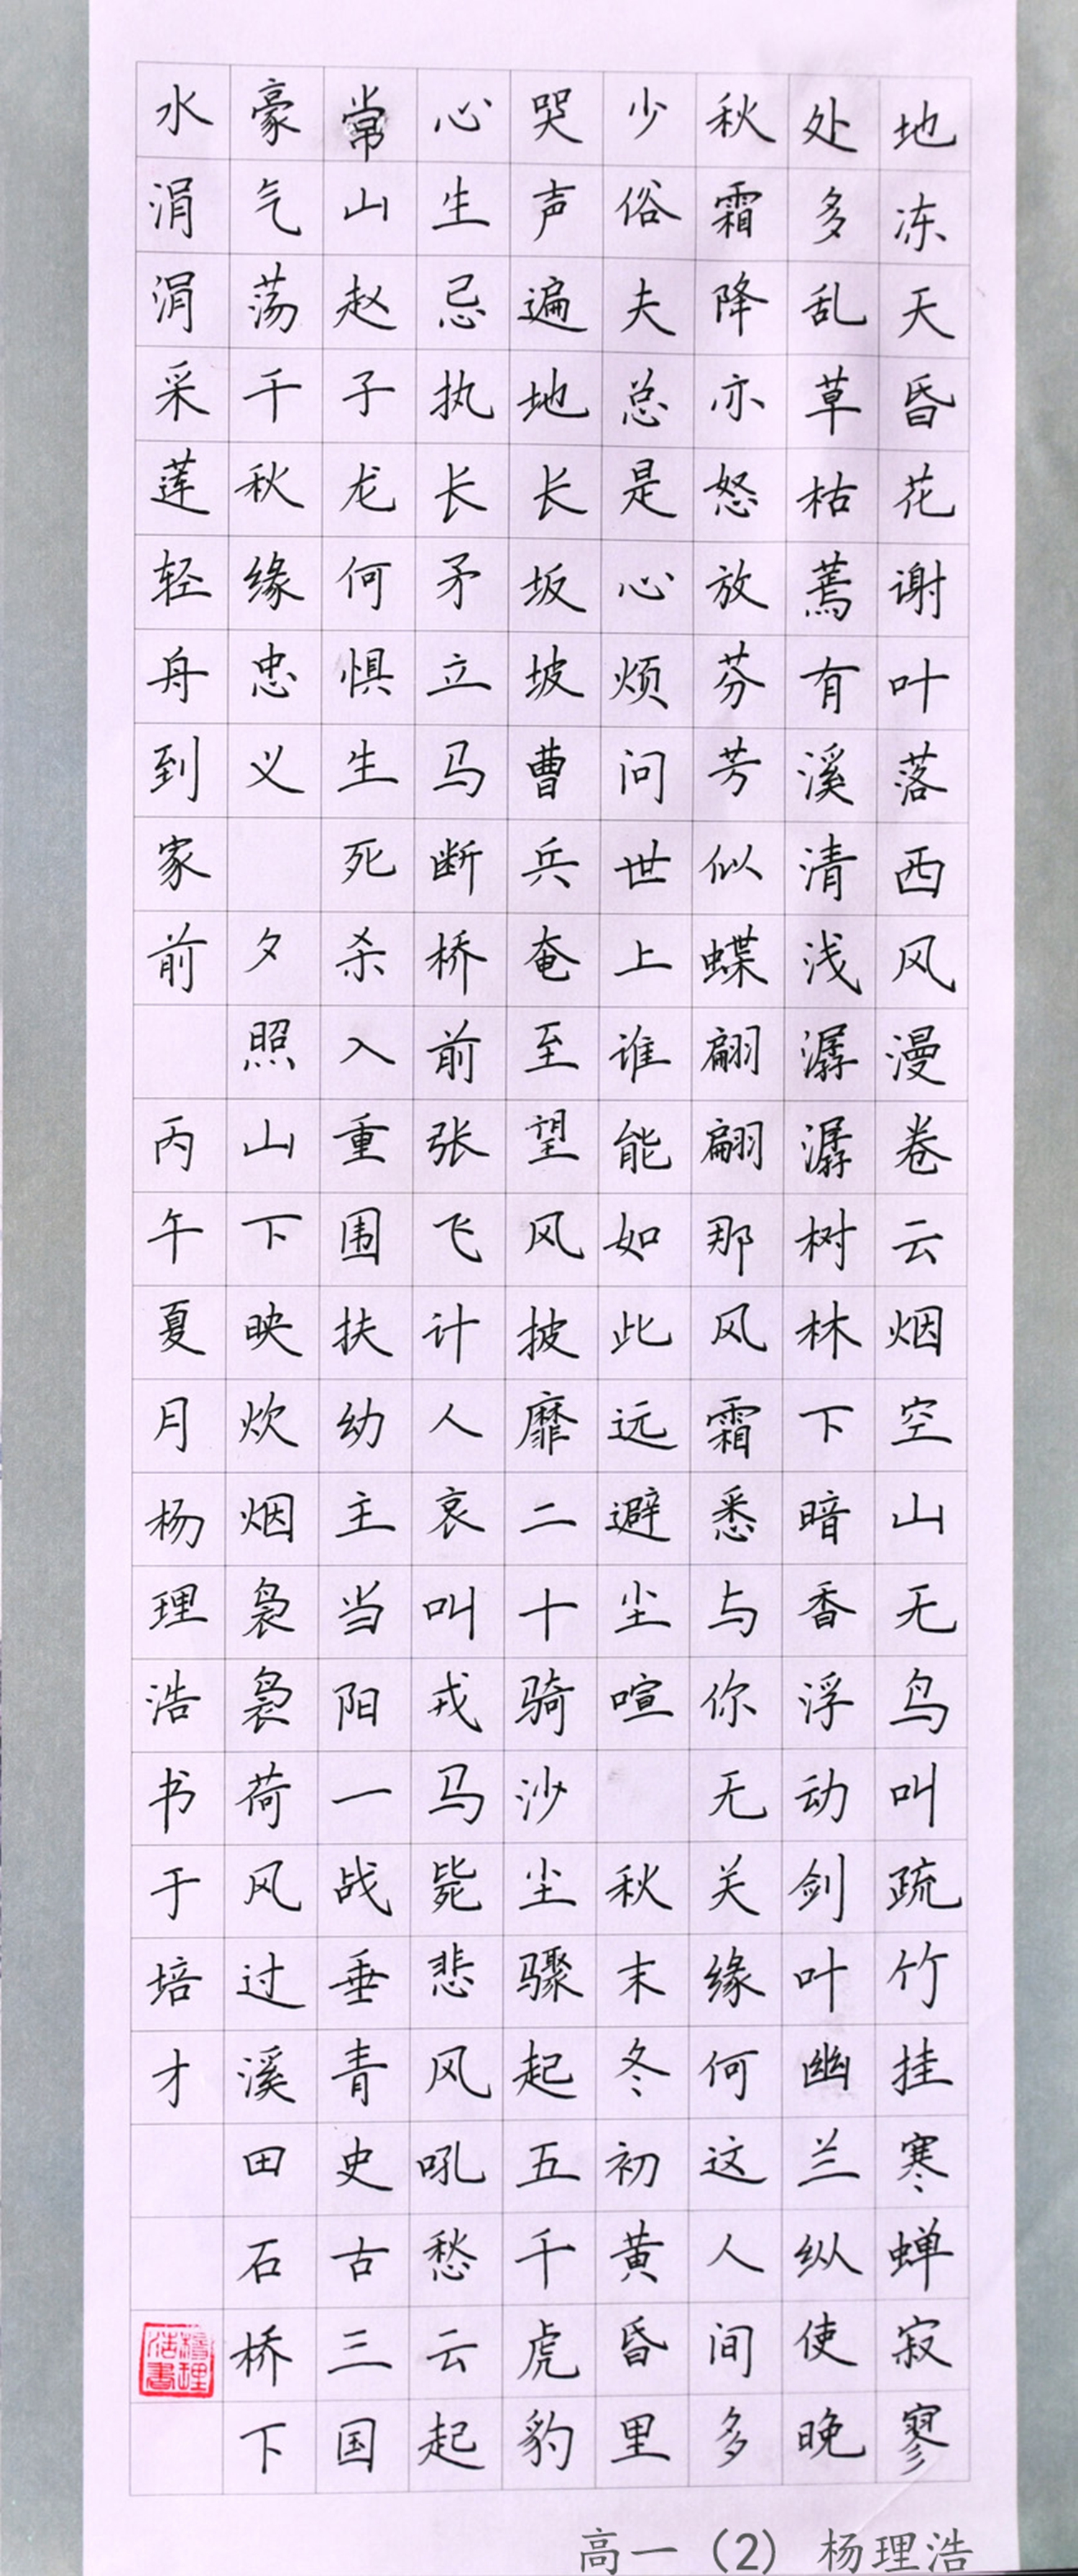 地冻天昏花谢叶落西风漫卷云烟空山无鸟叫疏竹挂寒蝉寂寥
处多乱草枯蔫有溪清浅潺潺树林下暗香浮动剑叶幽兰纵使晚
秋霜降亦怒放芬芳似蝶翩翩那风霜悉与你无关缘何这人间多
少俗夫总是心烦问世上谁能如此远避尘喧 秋末冬初黄昏里
哭声遍地长长坂坡曹兵奄至望风披靡二十骑沙尘骤起五千虎豹
心生忌执长矛立马断桥前张飞计人哀叫戎马毙悲风吼愁云起
常山赵子龙何惧生死杀入重围扶幼主当阳一战垂青史古三国
豪气荡千秋缘忠义 夕照山下映炊烟袅袅荷风过溪田石桥下
水涓涓采莲轻舟到家前 丙午夏月杨理浩书于培才
杨理浩書
高一（2） 杨理浩